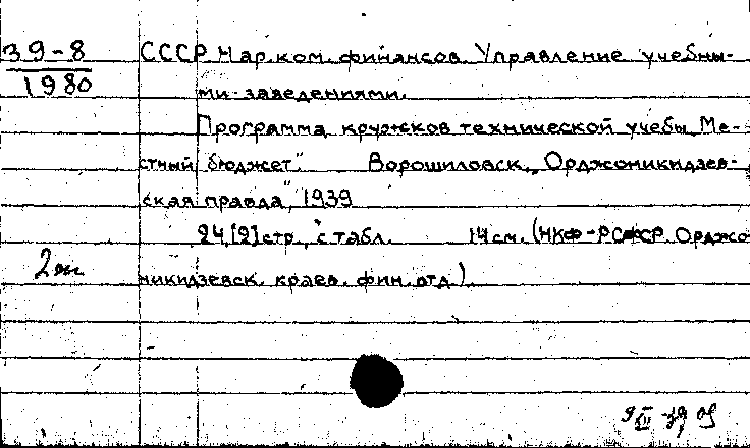 39-8
1980
СССР. Нар. ком. финансов. Управление учебны-
ми заведениями.
Программа кружков технической учебы „Ме-
стный бюджет". Ворошиловск, „Орджоникидзев-
ская правда", 1939
24, [2] стр., с табл. 14 см. (НКФ-РСФСР. Орджо-
2 эк.
никидзевск. краев. фин. отд.).